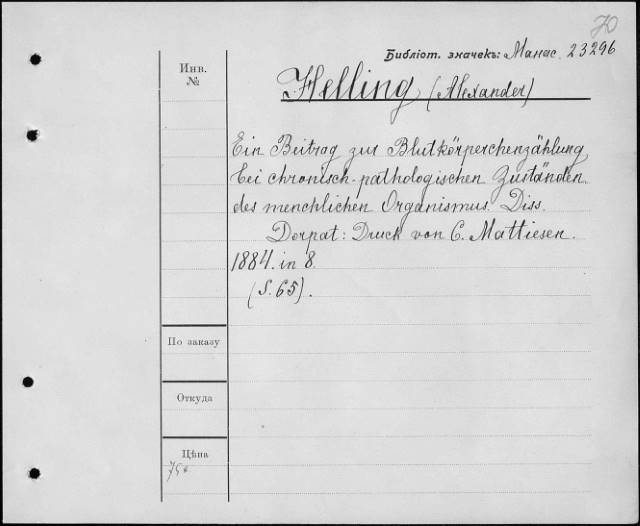 70
Библіот. значекъ: Манас. 23296
Инв.
№
Helling (Alexander)
Ein Beitrag zur Blutkörperchenzählung
bei chronisch-pathologischen Zuständen
des menchlichen Organismus. Diss.
Dorpat: Druck von C. Mattiesen.
1884. in 8.
(S. 65).
По заказу
Откуда
Цѣна